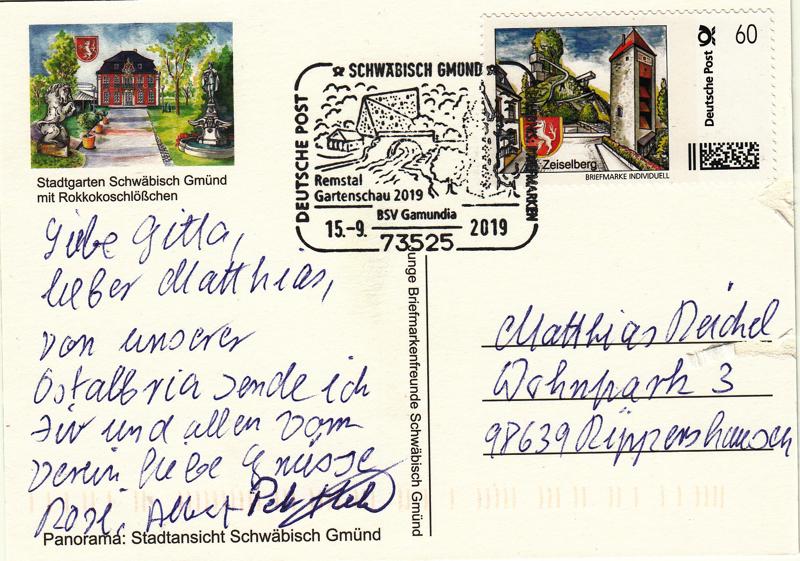 Stadtgarten Schwäbisch Gmünd
mit Rokkokoschlößchen
Liebe Gitta,
lieber Matthias,
von unserer
Ostalbria sende ich
Dir und allen vom
Verein liebe Grüsse
Rose, Albert
Panorama: Stadtansicht Schwäbisch Gmünd
SCHWÄBISCH GMÜND
DEUTSCHE POST
Remstal
Gartenschau 2019
BSV Gamundia
15.-9. 2019
73525
Zeiselberg
BRIEFMARKE INDIVIDUELL
Deutsche Post
60
Junge Briefmarkenfreunde Schwäbisch Gmünd
Matthias Reichel
Wohnpark 3
98639 Rippershausen